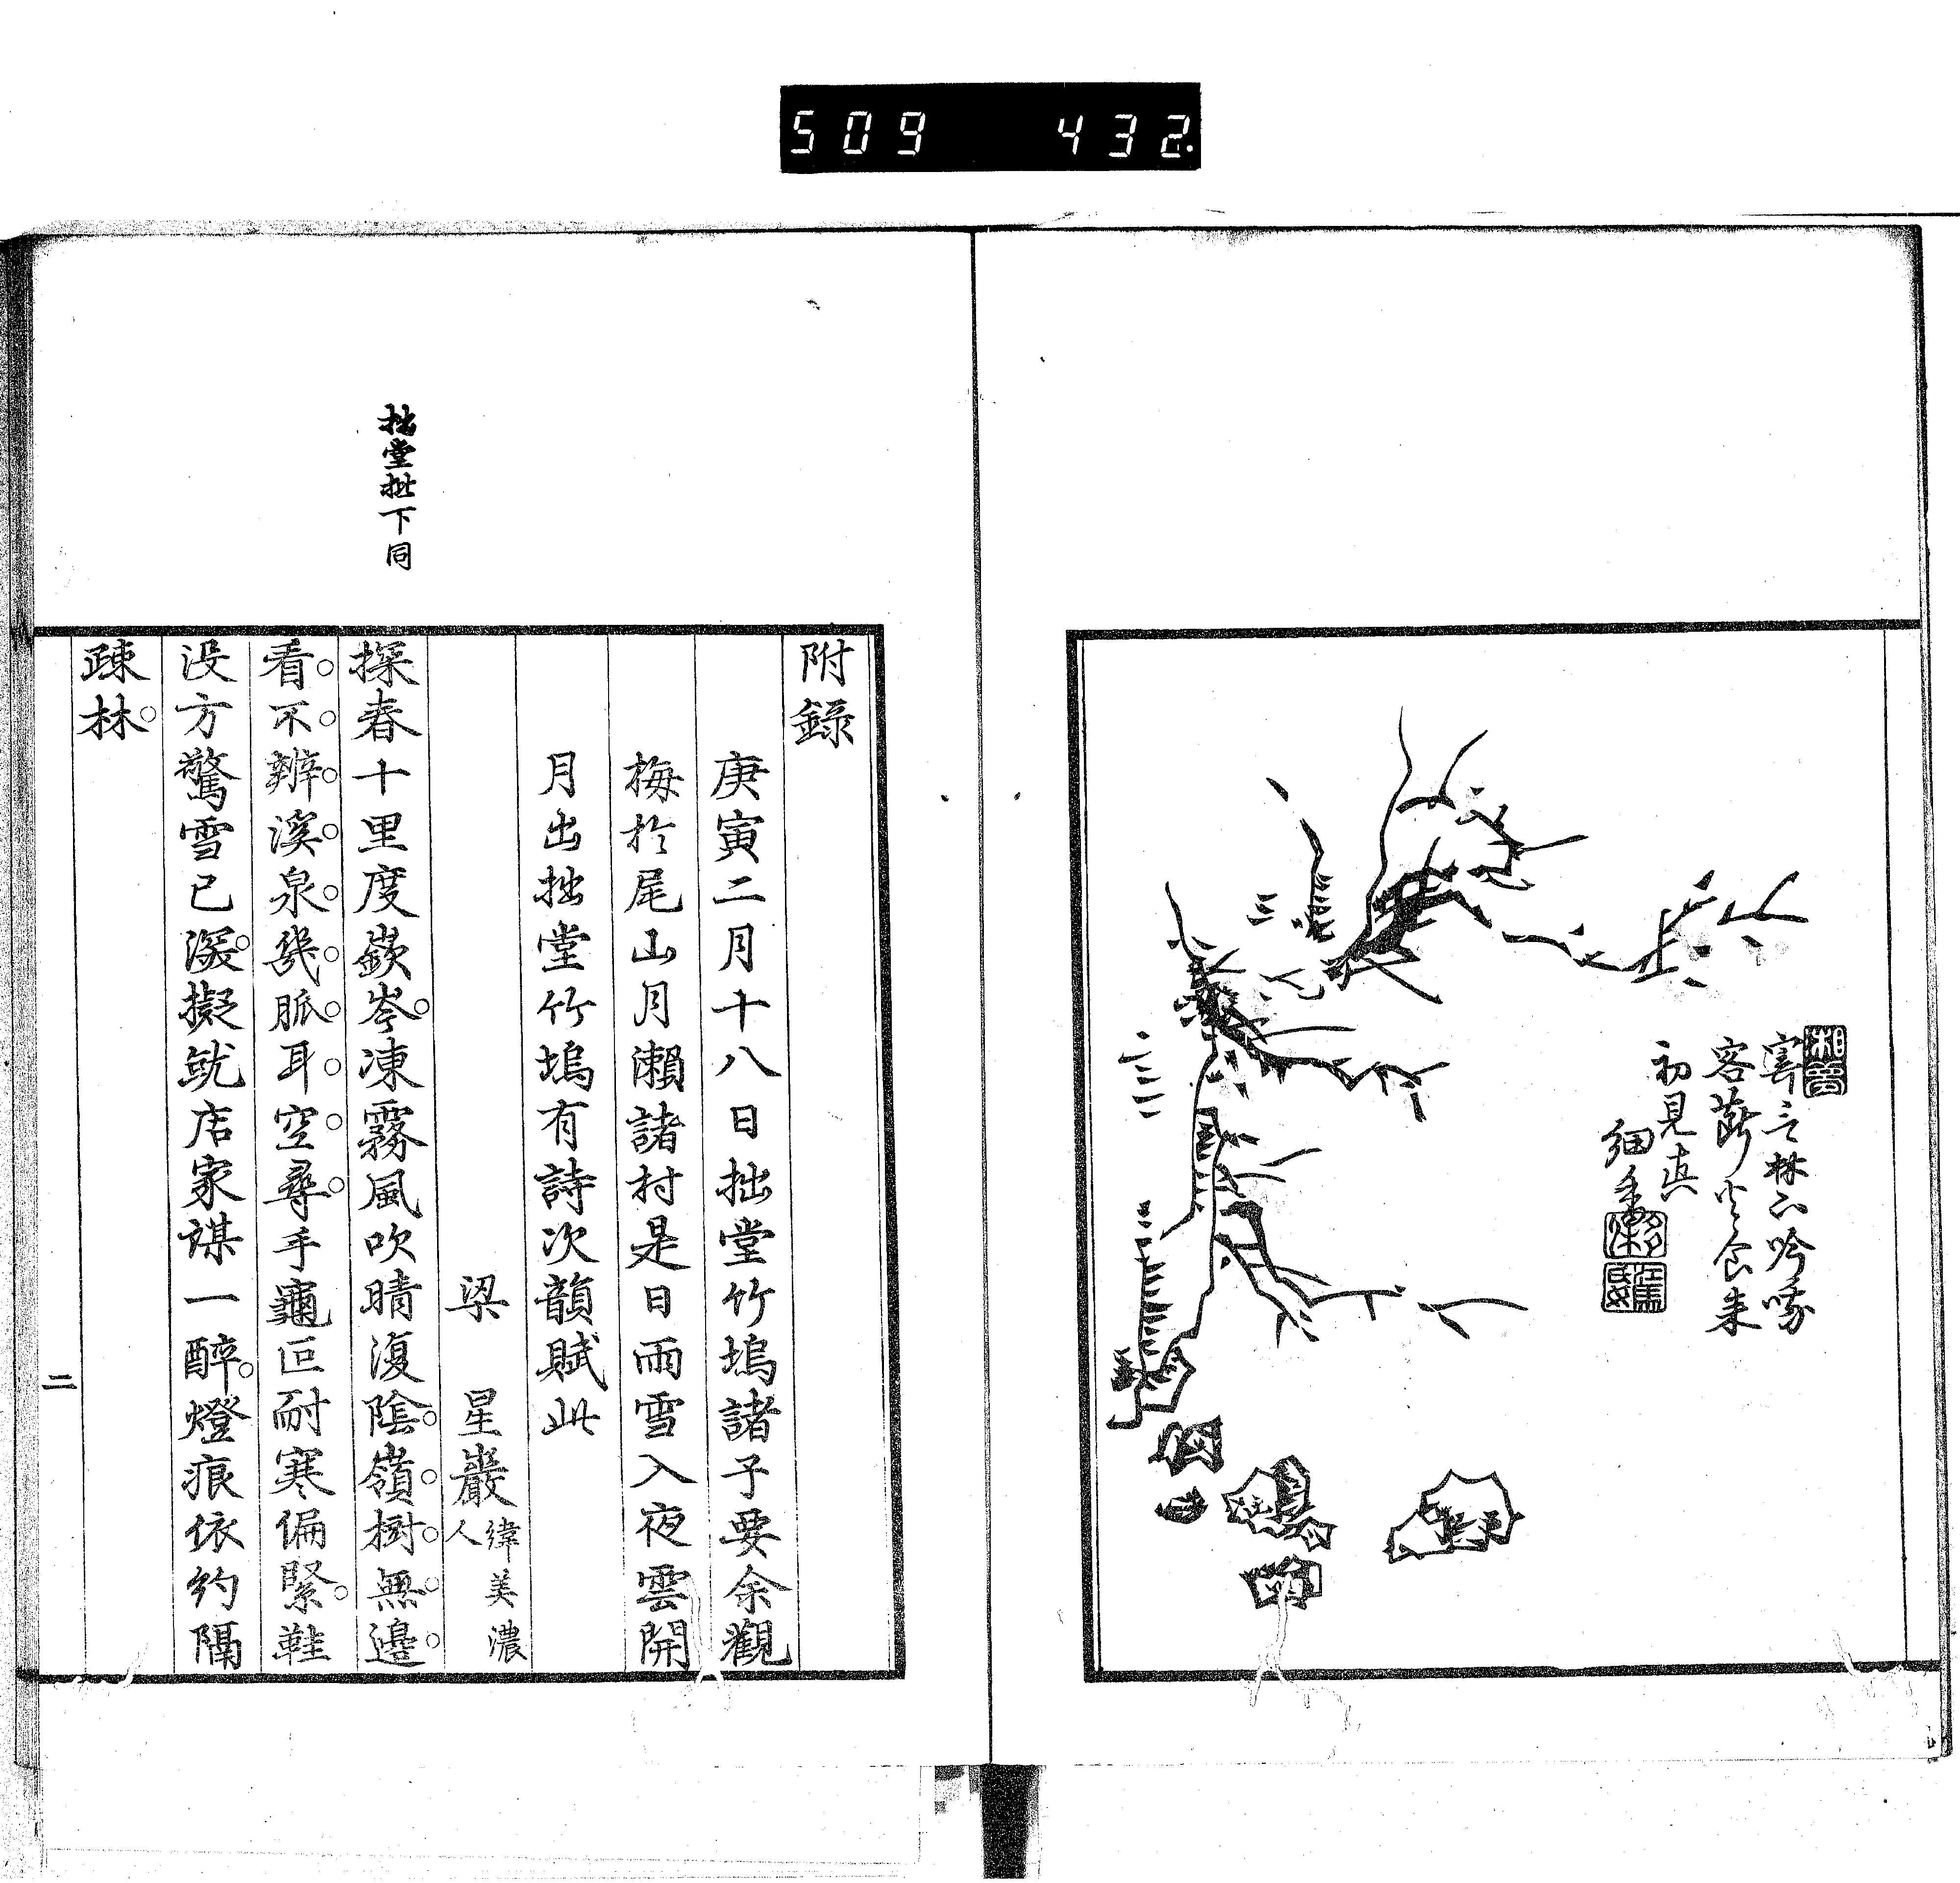 509 432
初見真
細香
附錄
庚寅二月十八日拙堂竹塢諸子要余觀
梅於尾山月瀨諸村是日雨雪入夜雲開
月出拙堂竹塢有詩次韻賦此
梁 星巖 緯美濃人
探春十里度嶔岑凍霧風吹晴復陰嶺樹無邊
看不辨溪泉幾脈耳空尋手龜叵耐寒偏緊鞋
没方驚雪已深擬就店家謀一醉燈痕依約隔
疎林
二
拙堂批下同